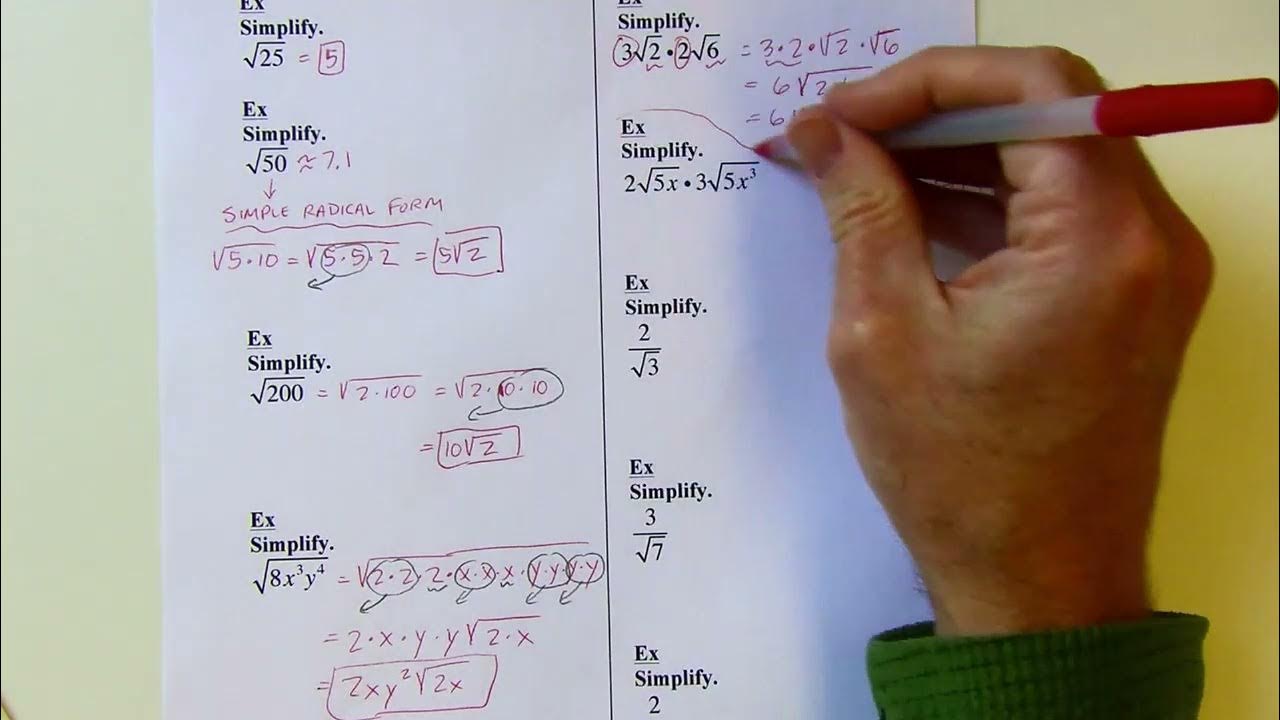 Ex
Simplify.
√25 = 5
Ex
Simplify.
√50 ≈ 7.1
↓
SIMPLE RADICAL FORM
√5·10 = √5·5·2 = 5√2
Ex
Simplify.
√200 = √2·100 = √2·10·10
= 10√2
Ex
Simplify.
√8x³y⁴ = √2·2·2·x·x·x·y·y·y·y
= 2·x·y·y√2·x
= 2xy²√2x
Ex
Simplify.
3√2 • 2√6 = 3·2·√2·√6
= 6√2
= 6
Ex
Simplify.
2√5x • 3√5x³
Ex
Simplify.
2/√3
Ex
Simplify.
3/√7
Ex
Simplify.
2